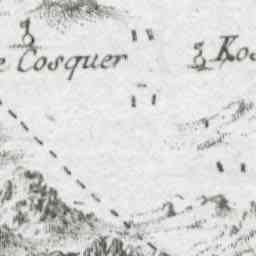 e Cosquer
Kos